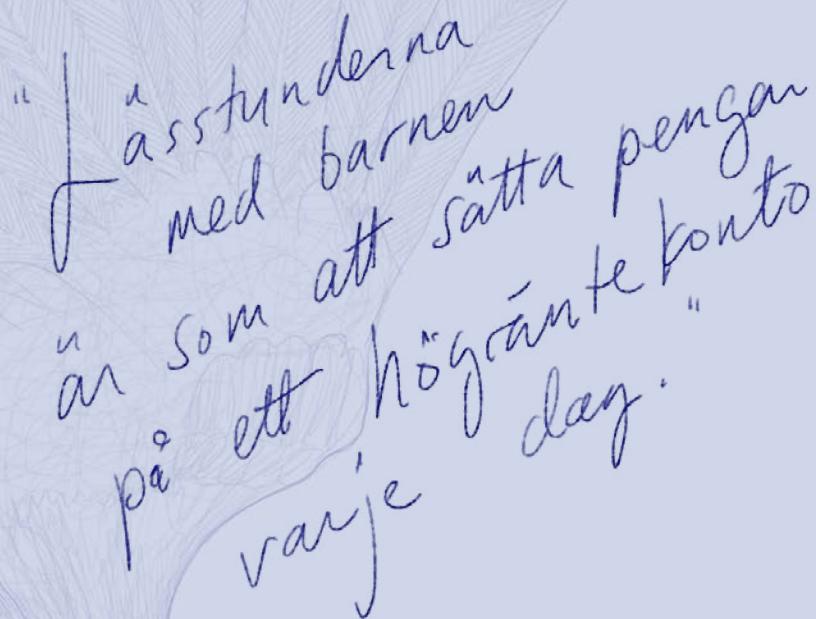 "Lässtunderna
med barnen
är som att sätta pengar
på ett högräntekonto
varje dag."